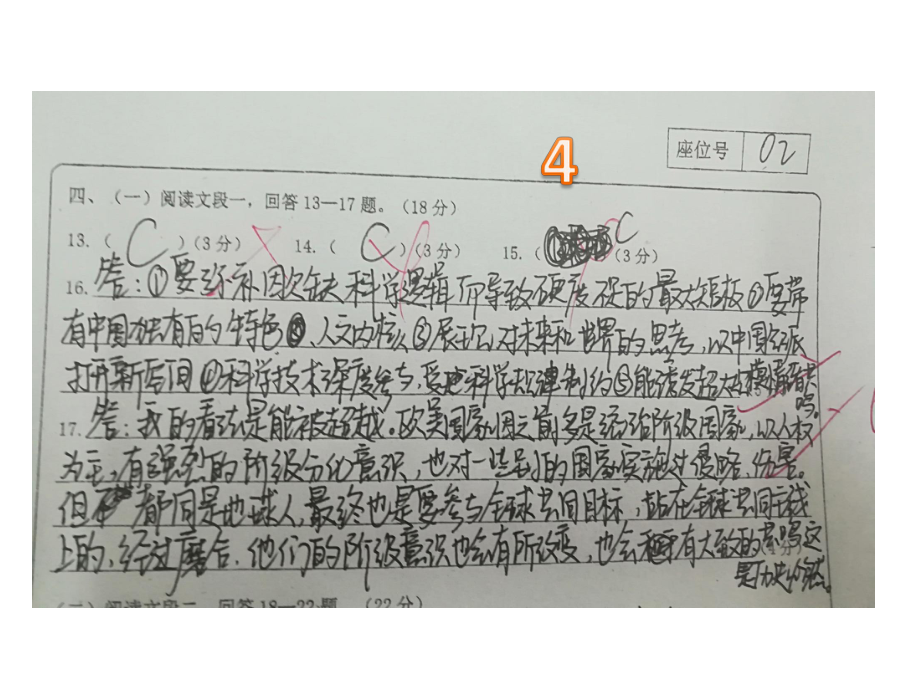 4
座位号 02
四、（一）阅读文段一，回答13—17题。（18分）
13.（C）（3分） 14.（C）（3分） 15.（C（3分）
16.答：①要弥补因欠缺科学逻辑而导致硬度不足的最大短板②要带
有中国独有的特色、人文内核③展现对未来和世界的思考，以中国气派
打开新局面④科学技术深度参与，受科学规律制约⑤能诱发超大规模情感共
鸣。
17.答：我的看法是能被超越。欧美国家因之前多是统治阶级国家，以人权
为主，有强烈的阶级分化意识，也对一些别的国家实施过侵略、伤害。
但都同是地球人，最终也是要参与全球共同目标，站在全球共同主线
上的，经过磨合，他们的阶级意识也会有所改变，也会有大致的共鸣，这
是历史必然。
（4分）
（二）阅读文段二，回答18—22题。（22分）